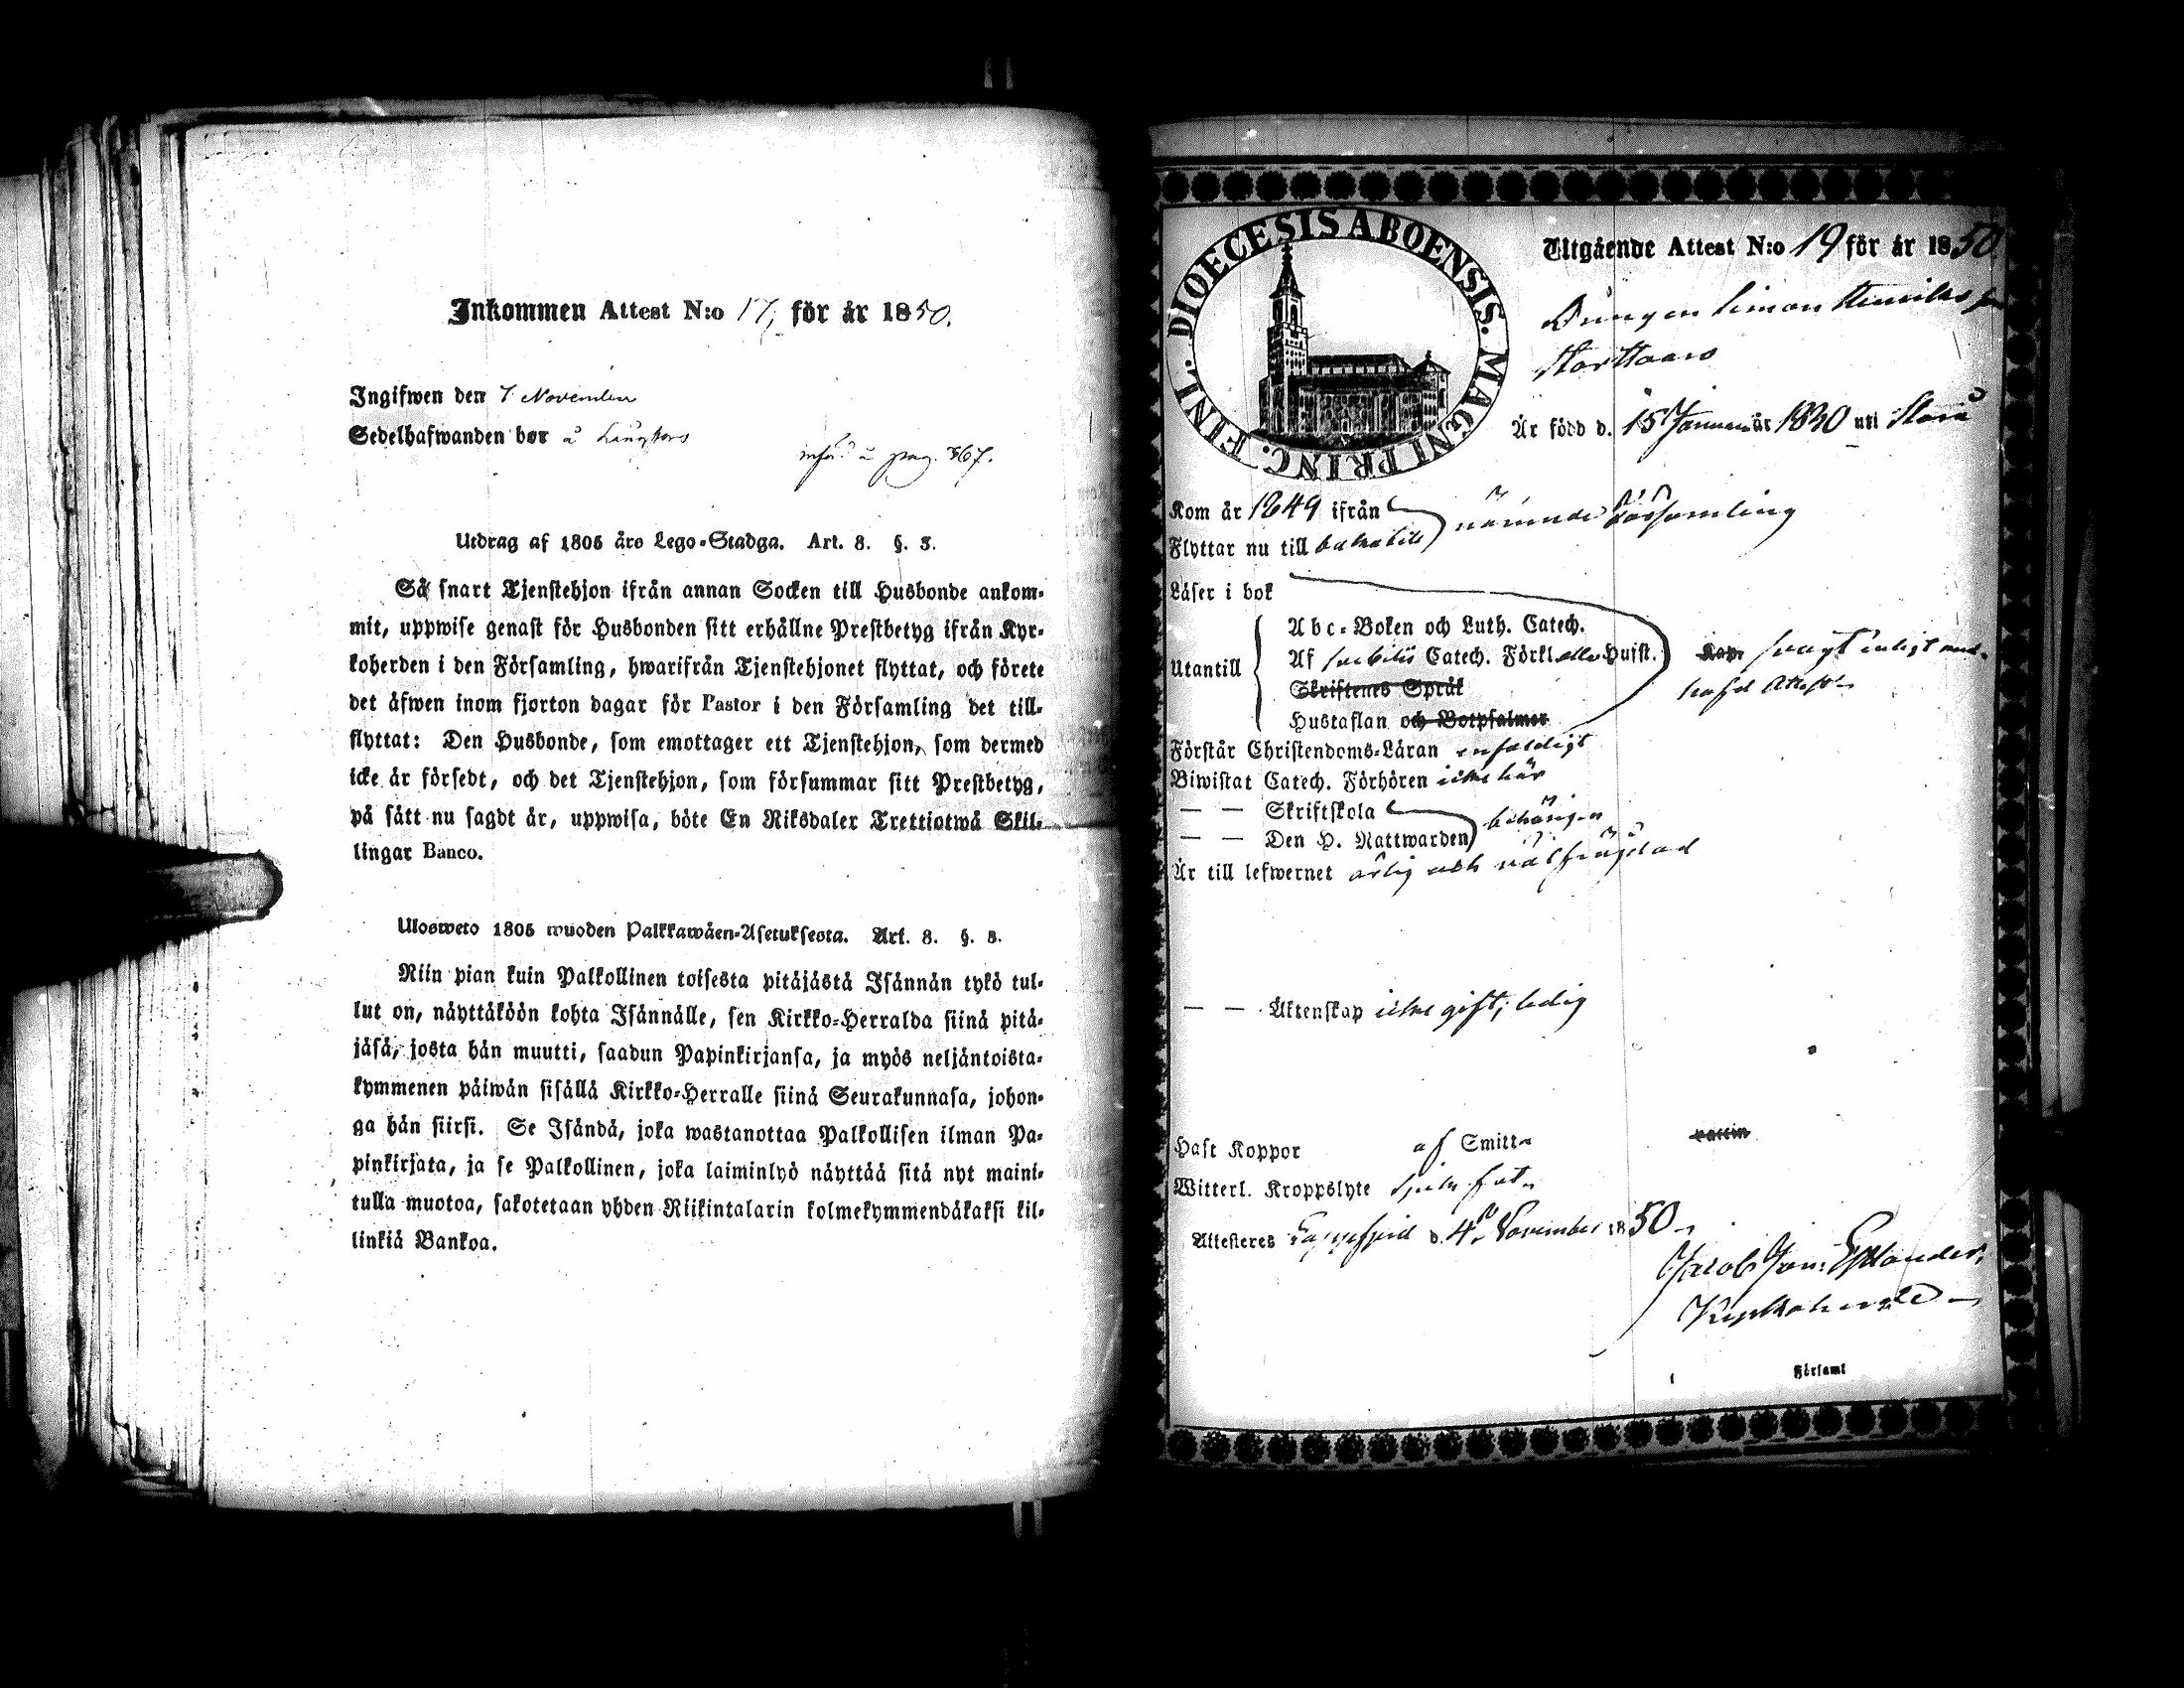 Inkommen Attest N:o 17, för år 1850.
Ingifwen den 7 November
Sedelhafwanden bor å
införd å pag. 367.
Utdrag af 1805 års Lego-Stadga. Art. 8. §. 3.
Så snart Tjenstehjon ifrån annan Socken till Husbonde ankom-
mit, uppwise genast för Husbonden sitt erhållne Prestbetyg ifrån Kyr-
koherden i den Församling, hwarifrån Tjenstehjonet flyttat, och förete
det äfwen inom fjorton dagar för Pastor i den Församling det till-
flyttat: Den Husbonde, som emottager ett Tjenstehjon, som dermed
icke är försedt, och det Tjenstehjon, som försummar sitt Prestbetyg,
på sätt nu sagdt är, uppwisa, böte En Riksdaler Trettiotwå Skil-
lingar Banco.
Ulosweto 1805 wuoden Palkkawäen-Asetuksesta. Art. 8. §. 3.
Niin pian kuin Palkollinen toisesta pitäjästä Isännän tykö tul-
lut on, näyttäköön kohta Isännälle, sen Kirkko-Herralda siinä pitä-
jäsä, josta hän muutti, saadun Papinkirjansa, ja myös neljäntoista-
kymmenen päiwän sisällä Kirkko-Herralle siinä Seurakunnasa, johon-
ga hän siirsi. Se Isändä, joka wastanottaa Palkollisen ilman Pa-
pinkirjata, ja se Palkollinen, joka laiminlyö näyttää sitä nyt maini-
tulla muotoa, sakotetaan yhden Riikintalarin kolmekymmendäkaksi kil-
linkiä Bankoa.
DIOECESIS ABOENSIS. MAGNI PRINC. FINL.
Utgående Attest N:o 19 för år 1850.
Drängen Simon Henriksson
Är född d. 15 Januari år 1830 uti
Kom år 1849 ifrån
Flyttar nu till tillbaka nämnde Församling
Läser i bok
Utantill
Abc-Boken och Luth. Catech.
Af Svebilii Catech. Förkl. eller Hufst.
Kap. svagt enligt med-
hafd Attest
Skriftenes Språk
Hustaflan och Botpsalmer
Förstår Christendoms-Läran enfaldigt
Biwistat Catech. Förhören icke här
— — Skriftskola
— — Den H. Nattwarden behörigen
Är till lefwernet ärlig och välfrägdad
— — Äktenskap icke gift, ledig
Haft Koppor af Smitta
vaccin
Witterl. Kroppslyte
Attesteres d. 4 November 1850
Jacob Joh:
Kyrkoherde
Församl